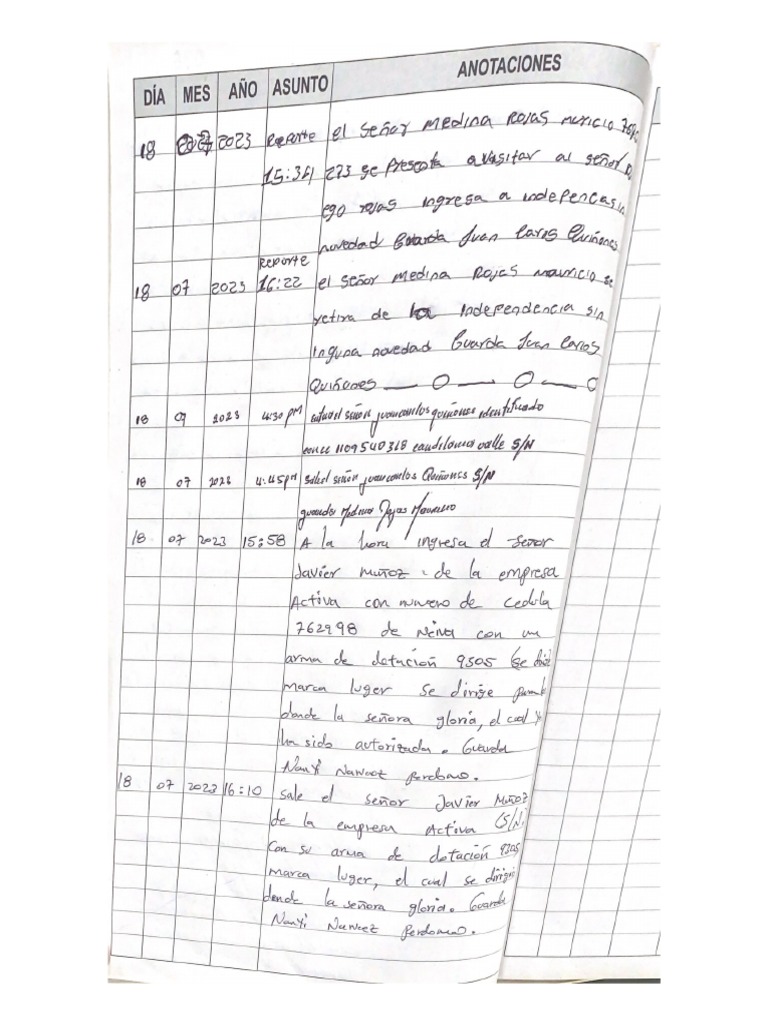 DÍA MES AÑO ASUNTO ANOTACIONES
18 2023 Reporte el señor Medina Rojas Mauricio
15:34 273 se presenta a visitar al señor Di
ego rojas ingresa a indepencasin
novedad Guarda Juan Carlos Quiñones
Reporte
18 07 2023 16:22 el señor Medina Rojas Mauricio se
retira de la independencia sin
inguna novedad Guarda Juan Carlos
Quiñones — O — O — O
18 09 2023 4:30 pm señor juan carlos quiñones identificado
con cc 1109540318 candilomas valle S/N
18 07 2023 4:45 pm sale el señor juan carlos Quiñones S/N
guarda Medina Rojas Mauricio
18 07 2023 15:58 A la hora ingresa el señor
Javier Muñoz de la empresa
Activa con numero de cedula
762998 de Neiva con un
arma de dotación 9505 (se dirige
marca luger se dirige para
donde la señora gloria, el cual ya
ha sido autorizada. Guarda
Nanyi Narvaez Perdomo.
18 07 2023 16:10 sale el señor Javier Muñoz
de la empresa Activa (S/N)
Con su arma de dotación 9305
marca luger, el cual se dirigio
donde la señora gloria. Guarda
Nanyi Narvaez Perdomo.